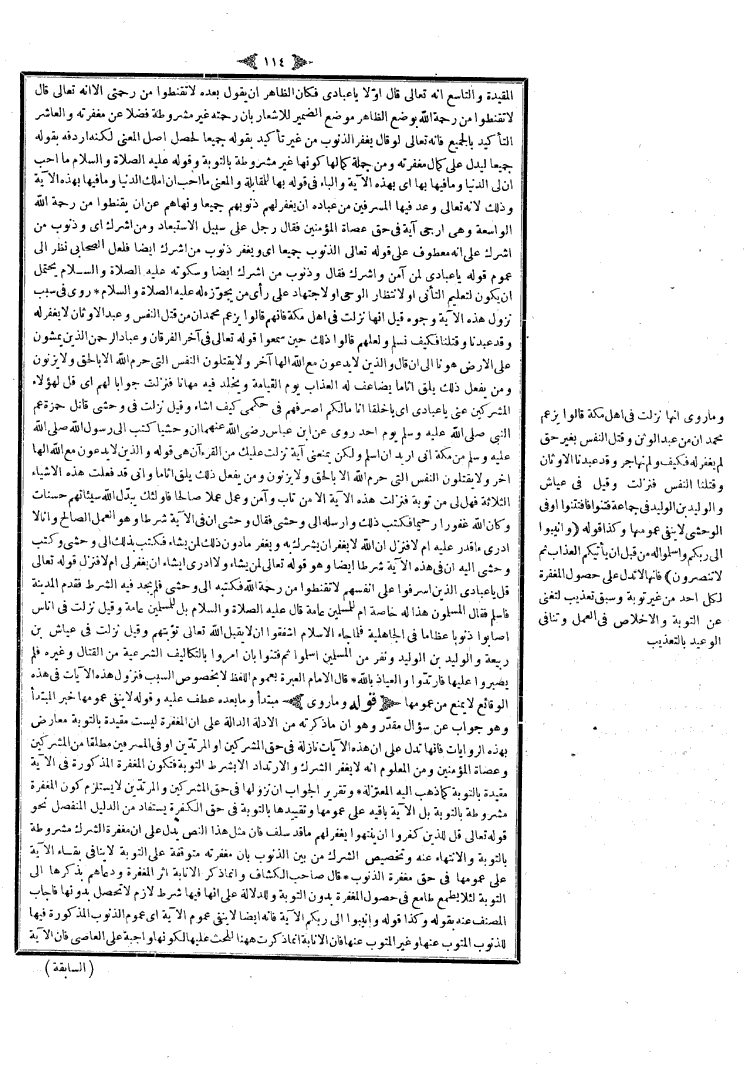 ١١٤
المقيدة والتاسع انه تعالى قال اولا ياعبادى فكان الظاهر ان يقول بعده لاتقنطوا من رحمتى الاانه تعالى قال
لاتقنطوا من رحمة الله بوضع الظاهر موضع الضمير للاشعار بان رحمته غير مشروطة فضلا عن مغفرته والعاشر
التأكيد بالجميع فانه تعالى لو قال يغفر الذنوب من غير تأكيد بقوله جميعا لحصل اصل المعنى لكنه اردفه بقوله
جميعا ليدل على كمال مغفرته ومن جملة كمالها كونها غير مشروطة بالتوبة وقوله عليه الصلاة والسلام ما احب
ان لى الدنيا ومافيها بها اى بهذه الآية والباء فى قوله بها للمقابلة والمعنى ما احب ان املك الدنيا ومافيها بهذه الآية
وذلك لانه تعالى وعد فيها المسرفين من عباده ان يغفر لهم ذنوبهم جميعا ونهاهم عن ان يقنطوا من رحمة الله
الواسعة وهى ارجى آية فى حق عصاة المؤمنين فقال رجل على سبيل الاستبعاد ومن اشرك اى وذنوب من
اشرك على انه معطوف على قوله تعالى الذنوب جميعا اى ويغفر ذنوب من اشرك ايضا فلعل الصحابى نظر الى
عموم قوله ياعبادى لمن آمن واشرك فقال وذنوب من اشرك ايضا وسكوته عليه الصلاة والسلام يحتمل
ان يكون لتعليم التأنى او لانتظار الوحى او لاجتهاد على رأى من يجوزه له عليه الصلاة والسلام * روى فى سبب
نزول هذه الآية وجوه قيل انها نزلت فى اهل مكة فانهم قالوا يزعم محمد ان من قتل النفس وعبد الاوثان لايغفر له
وقد عبدنا وقتلنا فكيف نسلم ولعلهم قالوا ذلك حين سمعوا قوله تعالى فى آخر الفرقان وعباد الرحمن الذين يمشون
على الارض هونا الى ان قال والذين لايدعون مع الله الها آخر ولايقتلون النفس التى حرم الله الا بالحق ولايزنون
ومن يفعل ذلك يلق اثاما يضاعف له العذاب يوم القيامة ويخلد فيه مهانا فنزلت جوابا لهم اى قل لهؤلاء
المشركين عنى ياعبادى اى ياخلقا انا مالكهم اصرفهم فى حكمى كيف اشاء وقيل نزلت فى وحشى قاتل حمزة عم
النبي صلى الله عليه وسلم يوم احد روى عن ابن عباس رضى الله عنهما ان وحشيا كتب الى رسول الله صلى الله
عليه وسلم من مكة انى اريد ان اسلم ولكن يمنعنى آية نزلت عليك من القرءآن هى قوله والذين لايدعون مع الله الها
اخر ولايقتلون النفس التى حرم الله الا بالحق ولايزنون ومن يفعل ذلك يلق اثاما وانى قد فعلت هذه الاشياء
الثلاثة فهل لى من توبة فنزلت هذه الآية الا من تاب وآمن وعمل عملا صالحا فاولئك يبدل الله سيئاتهم حسنات
وكان الله غفورا رحيما فكتب ذلك وارسله الى وحشى فقال وحشى ان فى الآية شرطا وهو العمل الصالح وانا لا
ادرى ماقدر عليه ام لا فنزل ان الله لايغفر ان يشرك به ويغفر مادون ذلك لمن يشاء فكتب بذلك الى وحشى وكتب
وحشى اليه ان فى هذه الآية شرطا ايضا وهو قوله تعالى لمن يشاء ولا ادرى ايشاء ان يغفر لى ام لا فنزل قوله تعالى
قل ياعبادى الذين اسرفوا على انفسهم لاتقنطوا من رحمة الله فكتبه الى وحشى فلم يجد فيه الشرط فقدم المدينة
فاسلم فقال المسلمون هذا له خاصة ام للمسلمين عامة قال عليه الصلاة والسلام بل للمسلمين عامة وقيل نزلت فى اناس
اصابوا ذنوبا عظاما فى الجاهلية فلما جاء الاسلام اشفقوا ان لايقبل الله تعالى توبتهم وقيل نزلت فى عياش بن
ربيعة والوليد بن الوليد ونفر من المسلمين اسلموا ثم فتنوا بان امروا بالتكاليف الشرعية من القتال وغيره فلم
يصبروا عليها فارتدوا والعياذ بالله * قال الامام العبرة بعموم اللفظ لابخصوص السبب فنزول هذه الآيات فى هذه
الوقائع لايمنع من عمومها ﴿قوله وماروى﴾ مبتدأ ومابعده عطف عليه وقوله لاينفى عمومها خبر المبتدأ
وهو جواب عن سؤال مقدر وهو ان ماذكرته من الادلة الدالة على ان المغفرة ليست مقيدة بالتوبة معارض
بهذه الروايات فانها تدل على ان هذه الآيات نازلة فى حق المشركين او المرتدين او فى المسرفين مطلقا من المشركين
وعصاة المؤمنين ومن المعلوم انه لايغفر الشرك والارتداد الابشرط التوبة فتكون المغفرة المذكورة فى الآية
مقيدة بالتوبة كما ذهب اليه المعتزلة * وتقرير الجواب ان نزولها فى حق المشركين والمرتدين لايستلزم كون المغفرة
مشروطة بالتوبة بل الآية باقيه على عمومها وتقييدها بالتوبة فى حق الكفرة يستفاد من الدليل المنفصل نحو
قوله تعالى قل للذين كفروا ان ينتهوا يغفر لهم ماقد سلف فان مثل هذا النص يدل على ان مغفرة الشرك مشروطة
بالتوبة والانتهاء عنه وتخصيص الشرك من بين الذنوب بان مغفرته متوقفة على التوبة لاينافى بقاء الآية
على عمومها فى حق مغفرة الذنوب * قال صاحب الكشاف وانما ذكر الانابة اثر المغفرة ودعاهم بذكرها الى
التوبة لئلا يطمع طامع فى حصول المغفرة بدون التوبة وللدلالة على انها فيها شرط لازم لاتحصل بدونها فاجاب
المصنف عنه بقوله وكذا قوله وانيبوا الى ربكم الآية فانه ايضا لاينفى عموم الآية اى عموم الذنوب المذكورة فيها
للذنوب المتوب عنها وغير المتوب عنها فان الانابة انما ذكرت ههنا للحث عليها لكونها واجبة على العاصى فان الآية
(السابقة)
وماروى انها نزلت فى اهل مكة قالوا يزعم
محمد ان من عبد الوثن وقتل النفس بغير حق
لم يغفر له فكيف ولم نهاجر وقد عبدنا الاوثان
وقتلنا النفس فنزلت وقيل فى عياش
والوليد بن الوليد فى جماعة فتنوا فافتتنوا او فى
الوحشى لاينفى عمومها وكذا قوله (وانيبوا
الى ربكم واسلموا له من قبل ان يأتيكم العذاب ثم
لاتنصرون) فانها لاتدل على حصول المغفرة
لكل احد من غير توبة وسبق تعذيب لتغنى
عن التوبة والاخلاص فى العمل وتنافى
الوعيد بالتعذيب